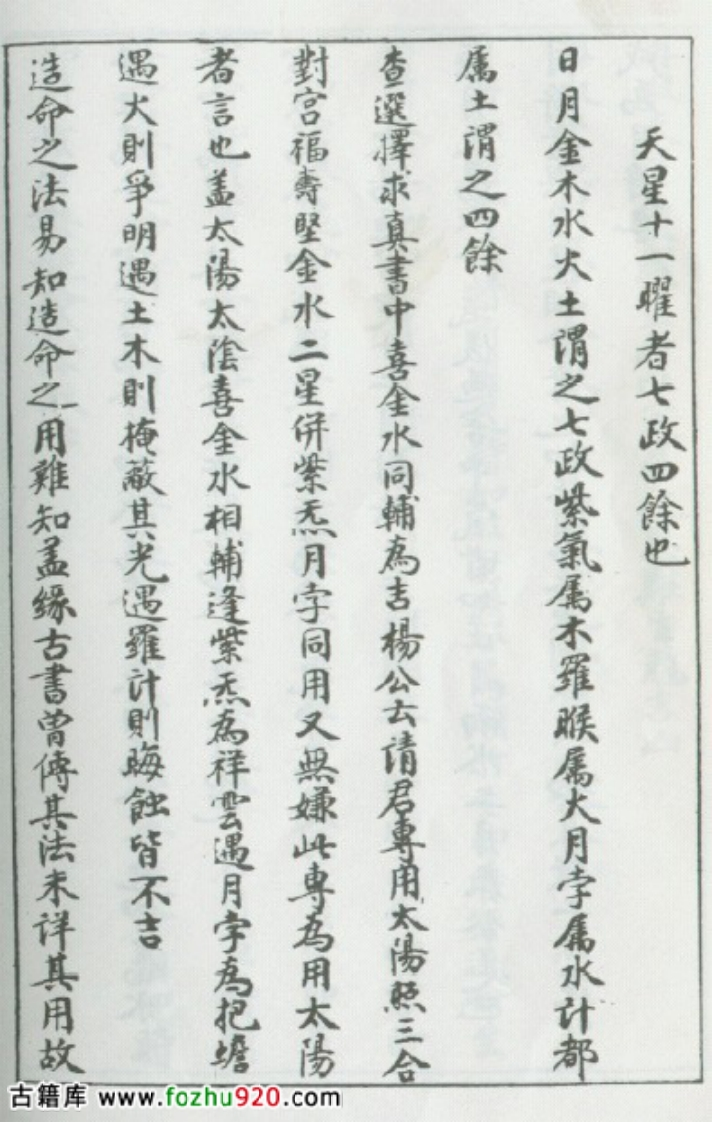 天星十一曜者七政四餘也
日月金木水火土謂之七政紫氣属木羅睺属火月孛属水計都
属土謂之四餘
查選擇求真書中喜金水同輔為吉楊公云請君專用太陽照三合
對宮福壽堅金水二星併紫炁月孛同用又無嫌此專為用太陽
者言也盖太陽太陰喜金水相輔逢紫炁為祥雲遇月孛為把蟾
遇火則爭明遇土木則掩蔽其光遇羅計則晦蝕皆不吉
造命之法易知造命之用難知盖緣古書曾傳其法未詳其用故
古籍库 www.fozhu920.com